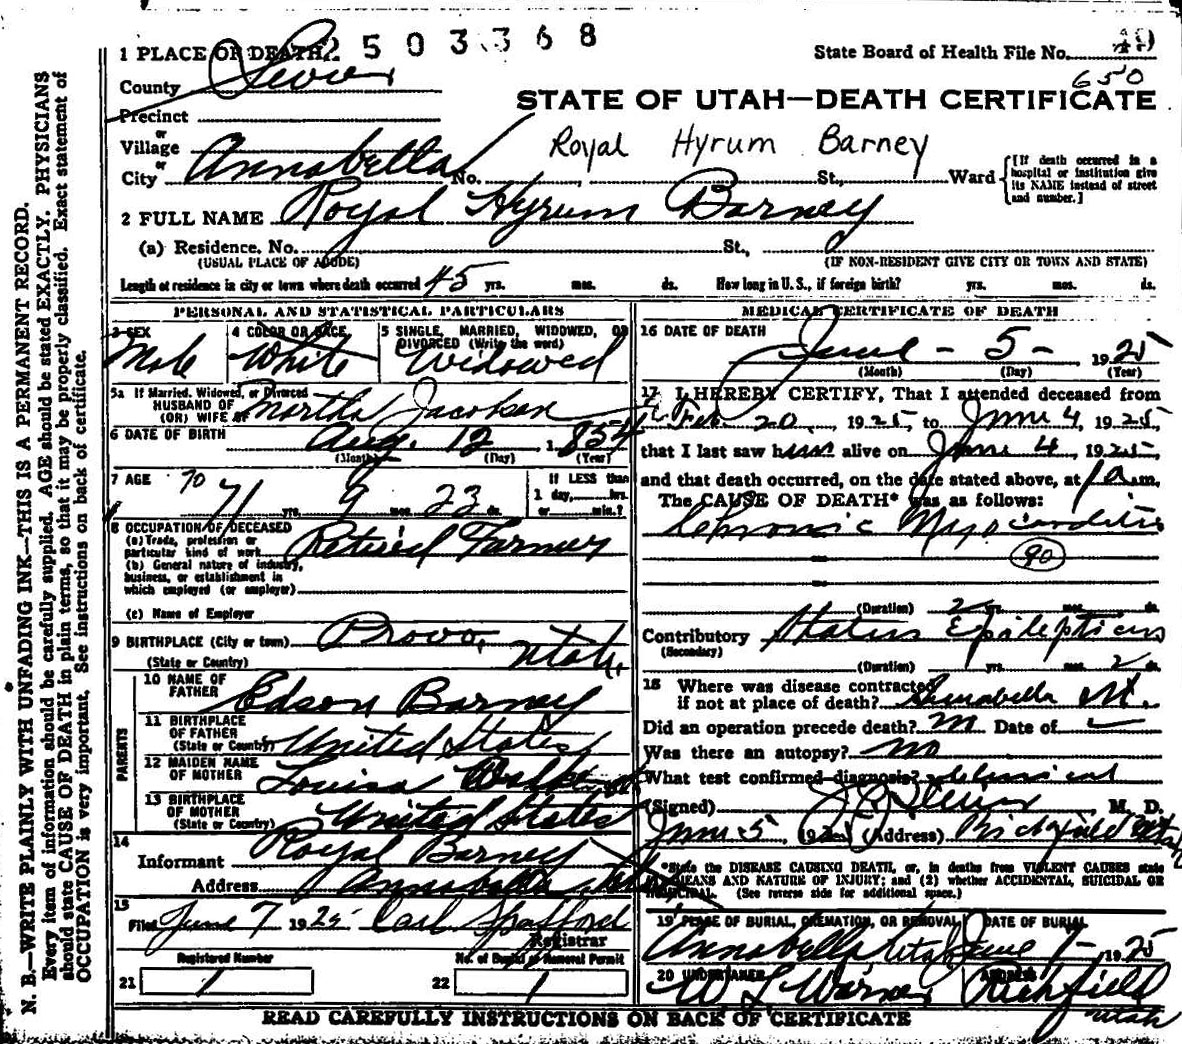 2503368
1 PLACE OF DEATH State Board of Health File No. 49
County Sevier 650
STATE OF UTAH—DEATH CERTIFICATE
Precinct
or
Village Royal Hyrum Barney
or
City Annabella No. St., Ward [If death occurred in a hospital or institution give its NAME instead of street and number.]
2 FULL NAME Royal Hyrum Barney
(a) Residence, No. St.,
(USUAL PLACE OF ABODE) (IF NON-RESIDENT GIVE CITY OR TOWN AND STATE)
Length of residence in city or town where death occurred 45 yrs. mos. ds. How long in U.S., if foreign birth? yrs. mos. ds.
PERSONAL AND STATISTICAL PARTICULARS
3 SEX 4 COLOR OR RACE 5 SINGLE, MARRIED, WIDOWED, OR
DIVORCED (Write the word)
Male White Widowed
5a If Married, Widowed, or Divorced
HUSBAND OF
(OR) WIFE OF Martha Jacobson
6 DATE OF BIRTH Aug. 12 1854
(Month) (Day) (Year)
7 AGE 70 If LESS than
71 yrs. 9 mos. 23 ds. 1 day, hrs.
or min.?
8 OCCUPATION OF DECEASED
(a) Trade, profession or
particular kind of work Retired Farmer
(b) General nature of industry,
business, or establishment in
which employed (or employer)
(c) Name of Employer
9 BIRTHPLACE (City or town) Provo,
(State or Country) Utah.
PARENTS
10 NAME OF
FATHER Edson Barney
11 BIRTHPLACE
OF FATHER
(State or Country) United States
12 MAIDEN NAME
OF MOTHER Louisa
13 BIRTHPLACE
OF MOTHER
(State or Country) United States
14
Informant Royal Barney
Address Annabella Utah
15
Filed June 7 1925 Carl Spafford
Registrar
Registered Number No. of Burial or Removal Permit
21 1 22 1
MEDICAL CERTIFICATE OF DEATH
16 DATE OF DEATH
June - 5 - 1925
(Month) (Day) (Year)
17 I HEREBY CERTIFY, That I attended deceased from
Feb. 20, 1925, to June 4, 1925,
that I last saw him alive on June 4, 1925,
and that death occurred, on the date stated above, at 1 a.m.
The CAUSE OF DEATH* was as follows:
Chronic Myocarditis
90
(Duration) 2 yrs. mos. ds.
Contributory Status Epilepticus
(Secondary)
(Duration) yrs. mos. 2 ds.
18 Where was disease contracted
if not at place of death? Annabella Ut.
Did an operation precede death? no Date of
Was there an autopsy? no
What test confirmed diagnosis? clinical
(Signed) M. D.
June 5, 1925 (Address) Richfield Utah
*State the DISEASE CAUSING DEATH, or, in deaths from VIOLENT CAUSES state
MEANS AND NATURE OF INJURY; and (2) whether ACCIDENTAL, SUICIDAL OR
HOMICIDAL. (See reverse side for additional space.)
19 PLACE OF BURIAL, CREMATION, OR REMOVAL DATE OF BURIAL
Annabella Utah June 7 - 1925
20 UNDERTAKER ADDRESS
W L Warner Richfield
Utah
READ CAREFULLY INSTRUCTIONS ON BACK OF CERTIFICATE
N. B.—WRITE PLAINLY WITH UNFADING INK—THIS IS A PERMANENT RECORD.
Every item of information should be carefully supplied. AGE should be stated EXACTLY. PHYSICIANS
should state CAUSE OF DEATH in plain terms, so that it may be properly classified. Exact statement of
OCCUPATION is very important. See instructions on back of certificate.